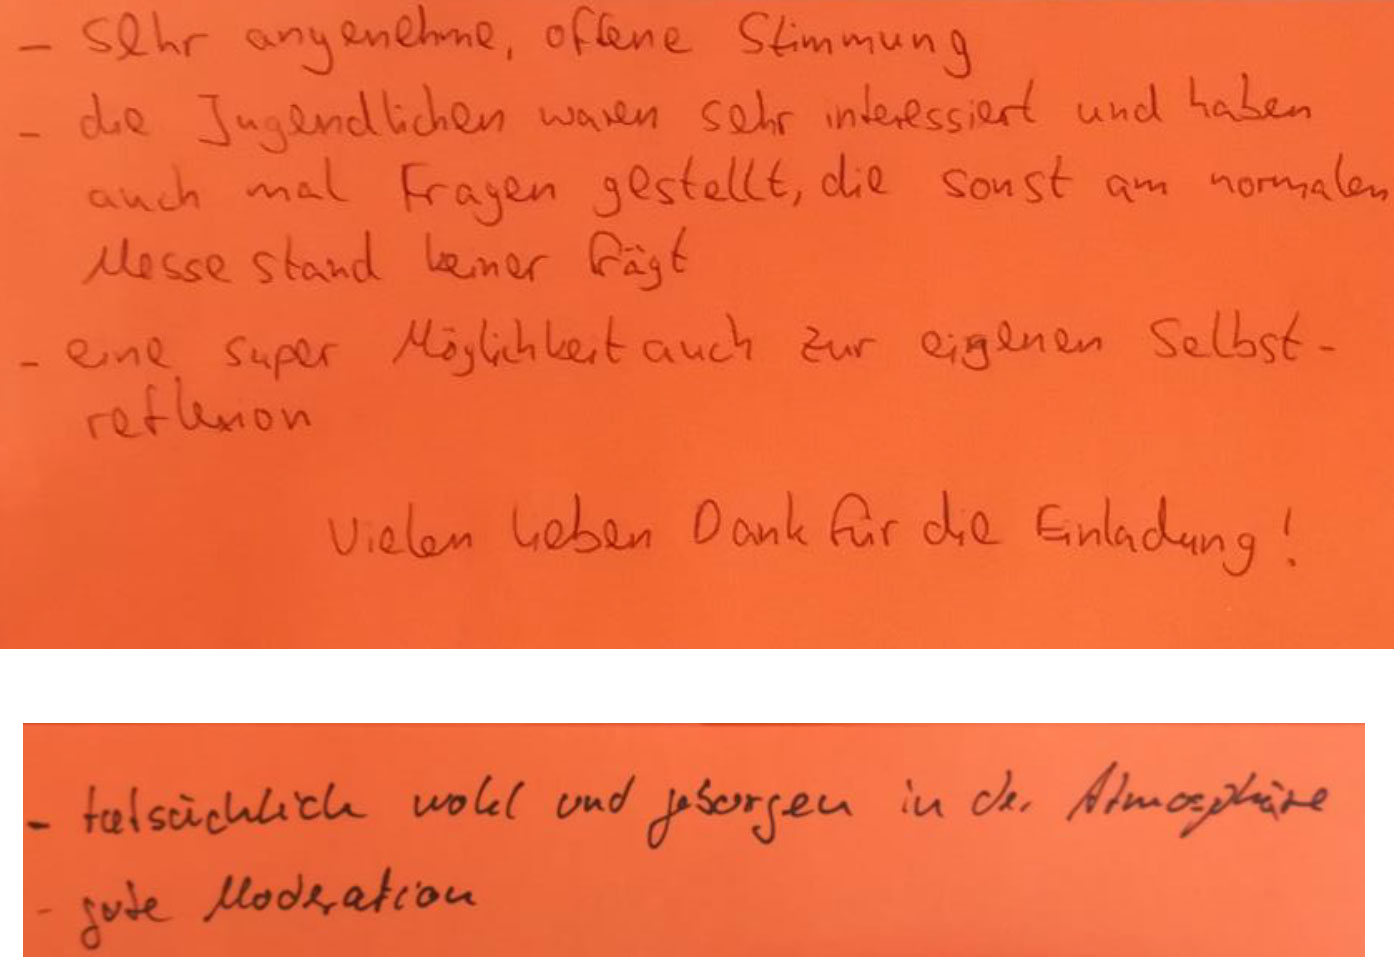 - sehr angenehme, offene Stimmung
- die Jugendlichen waren sehr interessiert und haben
auch mal Fragen gestellt, die sonst am normalen
Messestand keiner frägt
- eine super Möglichkeit auch zur eigenen Selbst-
reflexion
Vielen lieben Dank für die Einladung!
- tatsächlich wohl und geborgen in der Atmosphäre
- gute Moderation